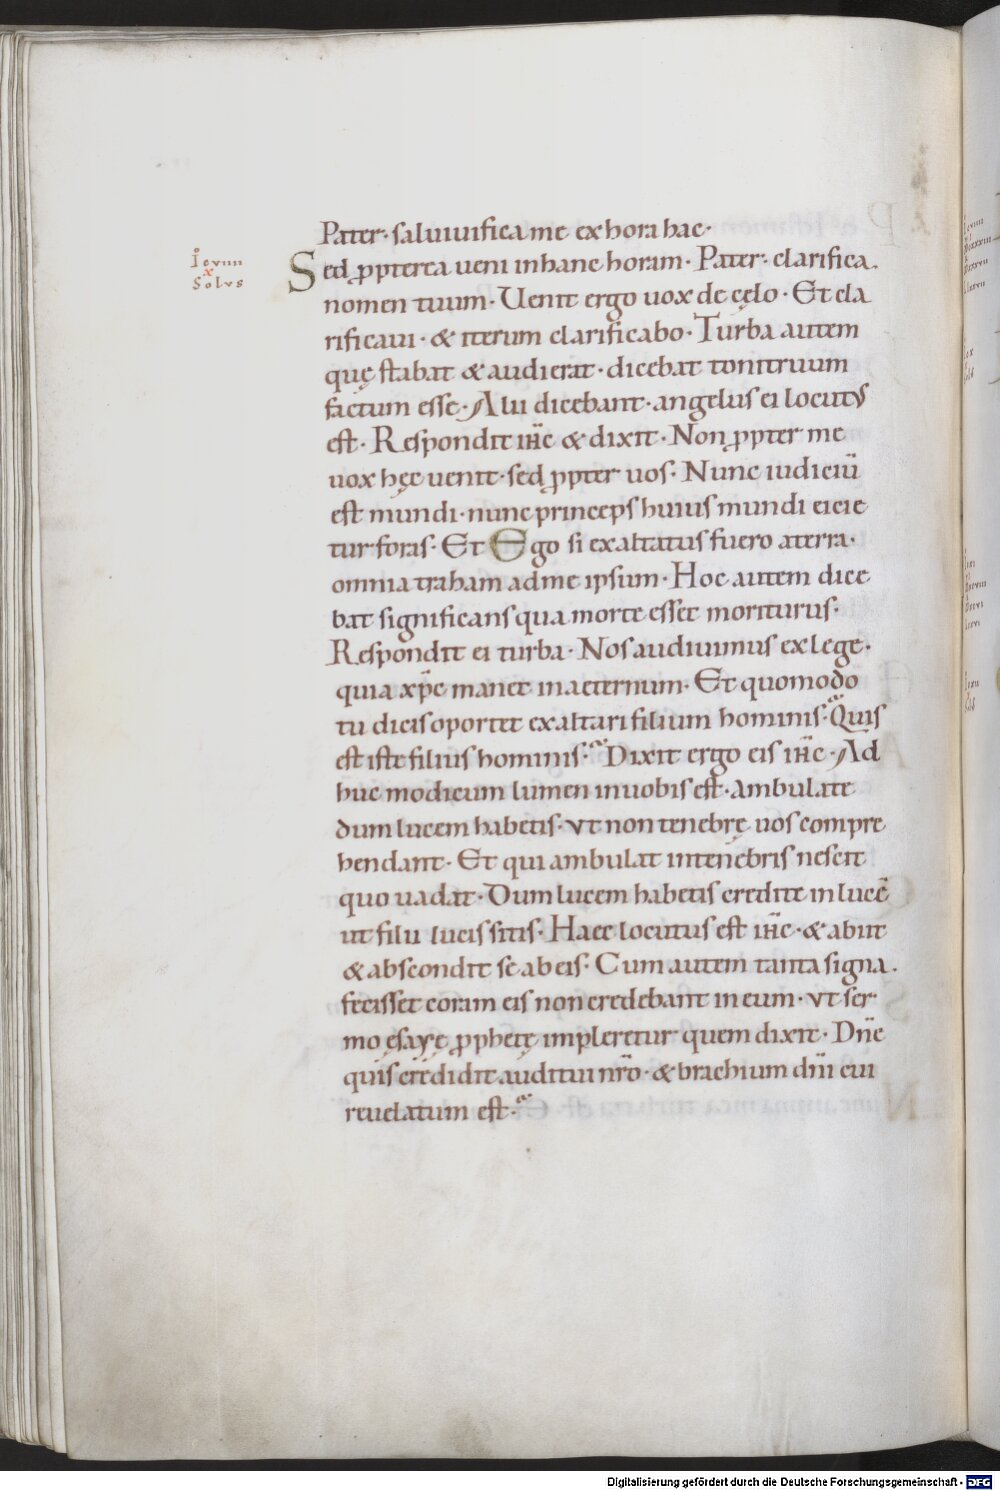 Pater· saluiuifica me ex hora hac·
Sed ꝓpterea ueni in hanc horam· Pater· clarifica
nomen tuum· Uenit ergo uox de cęlo· Et cla
rificaui· & iterum clarificabo· Turba autem
quę stabat & audierat· dicebat tonitruum
factum esse· Alii dicebant· angelus ei locutus
est· Respondit ihc̅ & dixit· Non ꝓpter me
uox hęc uenit· sed ꝓpter uos· Nunc iudiciū
est mundi· nunc princeps huius mundi eicie
tur foras· Et Ego si exaltatus fuero a terra·
omnia traham ad me ipsum· Hoc autem dice
bat significans qua morte esset moriturus·
Respondit ei turba· Nos audiuimus ex lege·
quia xp̅c manet in aeternum· Et quomodo
tu dicis oportet exaltari filium hominis· Quis
est iste filius hominis· Dixit ergo eis ihc̅· Ad
huc modicum lumen in uobis est· Ambulate
dum lucem habetis· vt non tenebrę uos compre
hendant· Et qui ambulat in tenebris nescit
quo uadat· Dum lucem habetis credite in lucē
ut filii lucis sitis· Haec locutus est ihc̅· & abiit
& abscondit se ab eis· Cum autem tanta signa
fecisset coram eis non credebant in eum· vt ser
mo ęsayę ꝓphetę impleretur quem dixit· Dn̅e
quis credidit auditui nr̅o· & brachium dn̅i cui
reuelatum est·
Io cviiii
x
Solvs
Digitalisierung gefördert durch die Deutsche Forschungsgemeinschaft - DFG